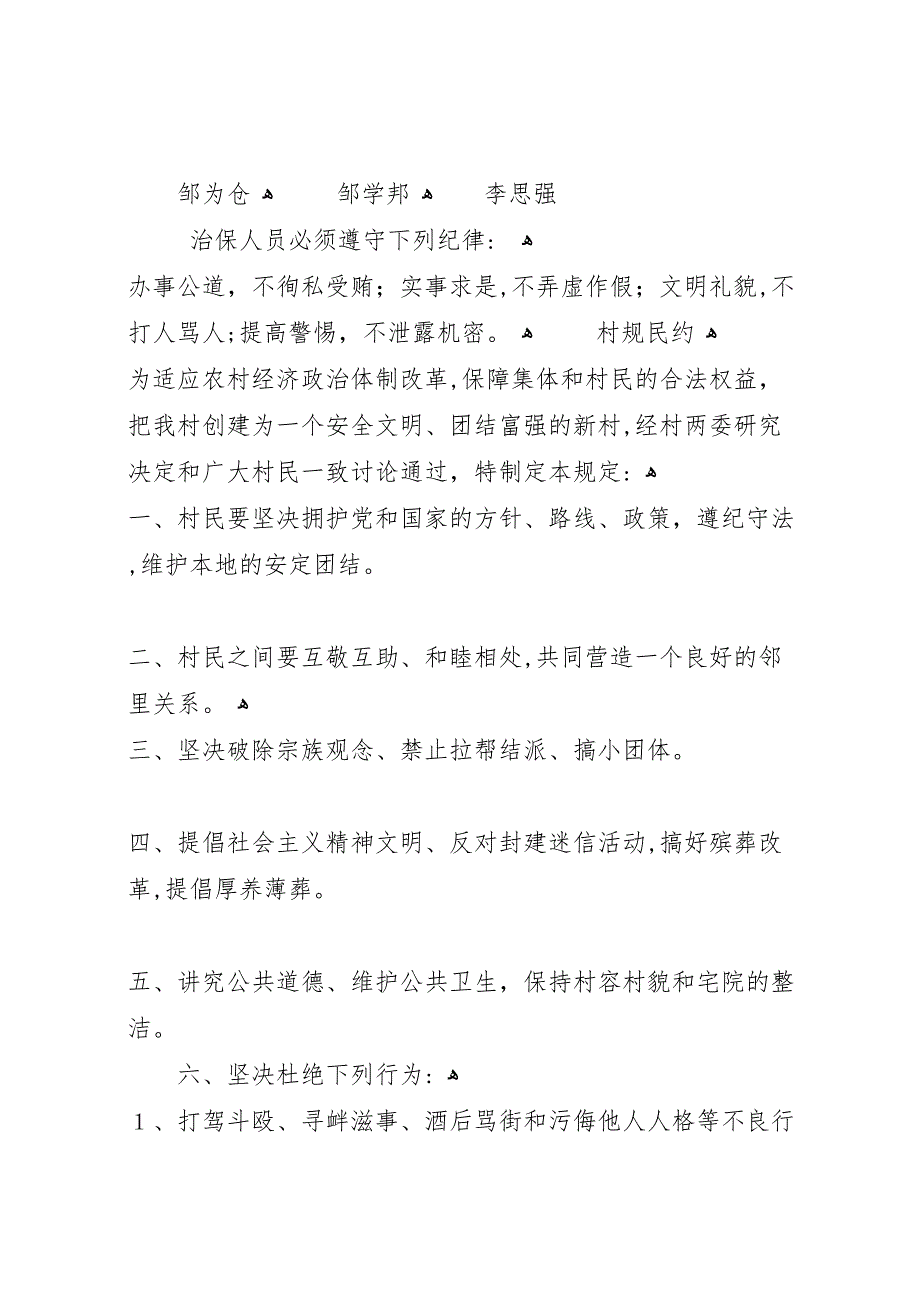 邹为仓ﻫ 邹学邦ﻫ 李思强
治保人员必须遵守下列纪律: ﻫ
办事公道，不徇私受贿；实事求是,不弄虚作假；文明礼貌,不
打人骂人;提高警惕，不泄露机密。ﻫ 村规民约ﻫ
为适应农村经济政治体制改革,保障集体和村民的合法权益，
把我村创建为一个安全文明、团结富强的新村,经村两委研究
决定和广大村民一致讨论通过，特制定本规定:ﻫ
一、村民要坚决拥护党和国家的方针、路线、政策，遵纪守法
,维护本地的安定团结。
二、村民之间要互敬互助、和睦相处,共同营造一个良好的邻
里关系。ﻫ
三、坚决破除宗族观念、禁止拉帮结派、搞小团体。
四、提倡社会主义精神文明、反对封建迷信活动,搞好殡葬改
革,提倡厚养薄葬。
五、讲究公共道德、维护公共卫生，保持村容村貌和宅院的整
洁。
六、坚决杜绝下列行为:ﻫ
１、打驾斗殴、寻衅滋事、酒后骂街和污侮他人人格等不良行